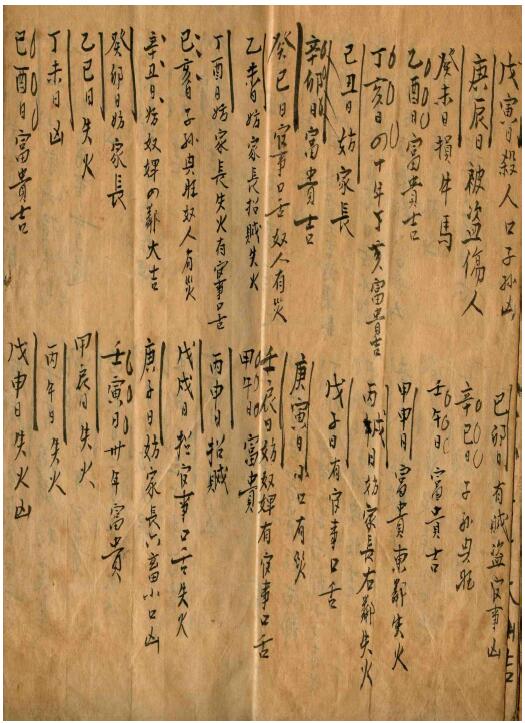 戊寅日殺人口子孫凶
巳卯日有賊盗官事凶
庚辰日被盗傷人
辛巳日子孫興旺
癸未日損牛馬
壬午日富貴吉
乙酉日富貴吉
甲申日富貴東鄰失火
丁亥日四十年丁亥富貴吉
丙戌日妨家長右鄰失火
己丑日妨家長
戊子日有官事口舌
辛卯日富貴吉
庚寅日小口有災
癸巳日官事口舌奴人有災
壬辰日妨奴婢有官事口舌
乙未日妨家長招賊失火
甲午日富貴
丁酉日妨家長失火有官事口舌
丙申日招賊
巳亥日子孫興旺奴人有災
戊戌日招官事口舌失火
辛丑日妨奴婢四鄰大吉
庚子日妨家長六畜小口凶
癸卯日妨家長
壬寅日卅年富貴
乙巳日失火
甲辰日失火
丁未日凶
丙午日失火
巳酉日富貴吉
戊申日失火凶